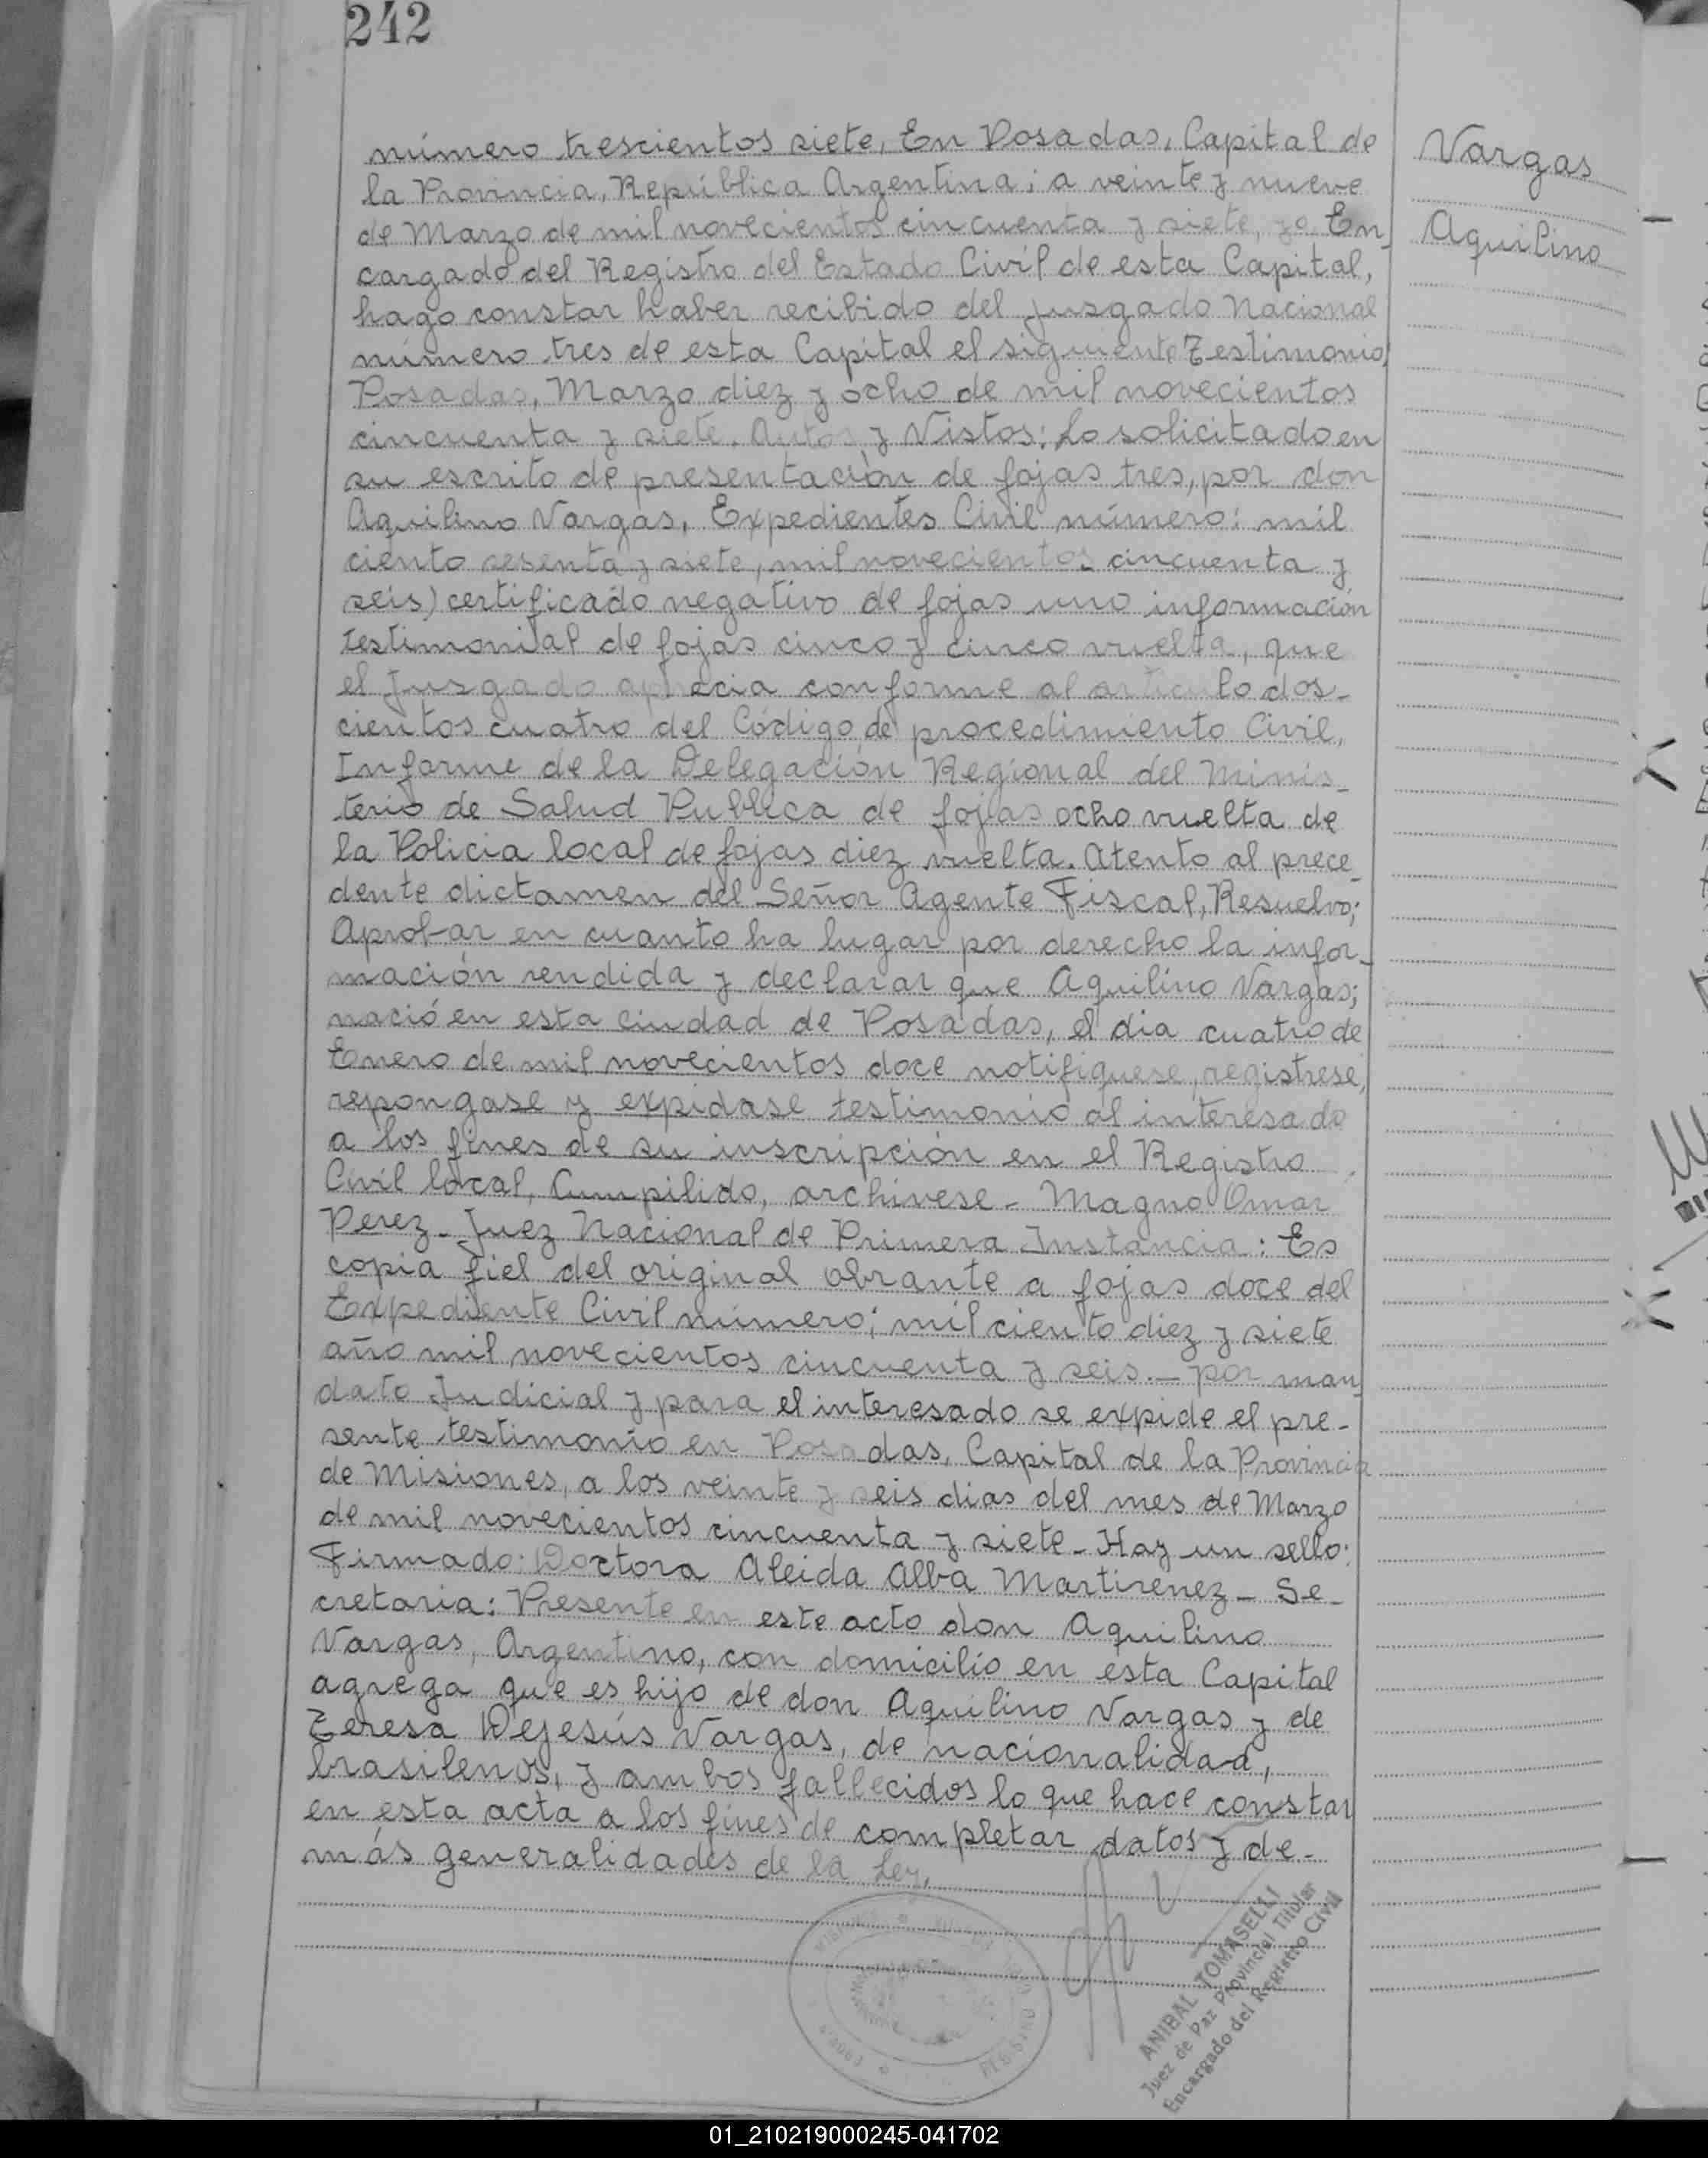 242
número trescientos siete, En Posadas, Capital de
la Provincia, República Argentina; a veinte y nueve
de Marzo de mil novecientos cincuenta y siete, yo En_
cargado del Registro del Estado Civil de esta Capital,
hago constar haber recibido del Jusgado Nacional
número tres de esta Capital el siguiente Testimonio,
Posadas, Marzo diez y ocho de mil novecientos
cincuenta y siete. Autos y Vistos: Lo solicitado en
su escrito de presentación de fojas tres, por don
Aquilino Vargas, Expedientes Civil número: mil
ciento sesenta y siete, mil novecientos cincuenta y
seis) certificado negativo de fojas uno información
testimonial de fojas cinco y cinco vuelta, que
el Jusgado aprecia conforme al articulo dos_
cientos cuatro del Código de procedimiento Civil,
Informe de la Delegación Regional del Minis_
terio de Salud Publica de fojas ocho vuelta de
la Policia local de fojas diez vuelta. Atento al prece_
dente dictamen del Señor Agente Fiscal, Resuelvo;
Aprobar en cuanto ha lugar por derecho la infor_
mación rendida y declarar que Aquilino Vargas;
nació en esta ciudad de Posadas, el dia cuatro de
Enero de mil novecientos doce notifiquese, registrese,
repongase y expidase testimonio al interesado
a los fines de su inscripción en el Registro
Civil local, Cumpilido, archivese_ Magno Omar
Perez_ Juez Nacional de Primera Instancia: Es
copia fiel del original obrante a fojas doce del
Expediente Civil número; mil ciento diez y siete
año mil novecientos cincuenta y seis._ por man_
dato Judicial y para el interesado se expide el pre_
sente testimonio en Posadas, Capital de la Provincia
de Misiones, a los veinte y seis dias del mes de Marzo
de mil novecientos cincuenta y siete_ Hay un sello:
Firmado: Doctora Aleida Alba Martirenez_ Se_
cretaria: Presente en este acto don Aquilino
Vargas, Argentino, con domicilio en esta Capital
agrega que es hijo de don Aquilino Vargas y de
Teresa Dejesús Vargas, de nacionalidad,
brasilenos, y ambos fallecidos lo que hace constar
en esta acta a los fines de completar datos y de_
más generalidades de la Ley.
Vargas
Aquilino
ANIBAL TOMASELLI
Juez de Paz Provincial Titular
Encargado del Registro Civil
01_210219000245-041702